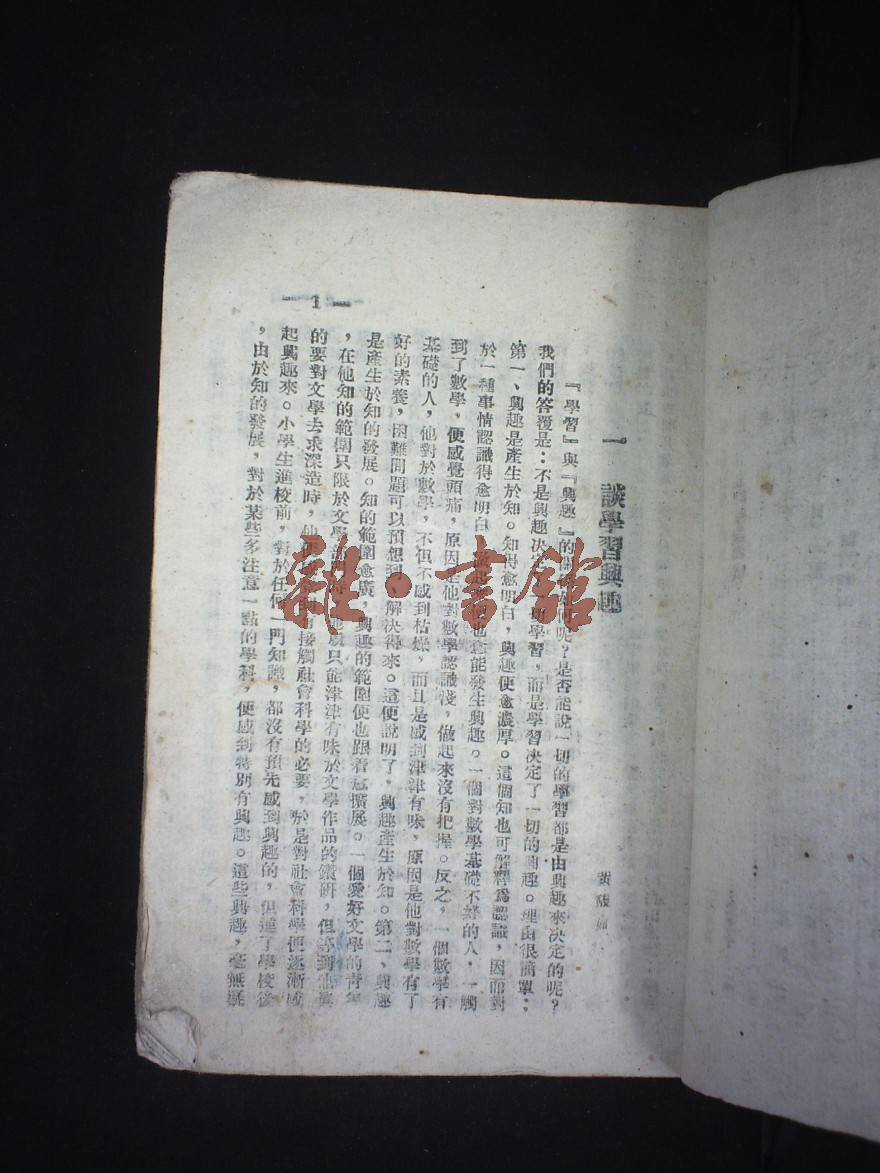 一 談學習興趣
黃
『學習』與『興趣』的關係如何呢？是否能說一切的學習都是由興趣來決定的呢？
我們的答覆是：不是興趣決定一切學習，而是學習決定了一切的興趣。理由很簡單：
第一、興趣是產生於知。知得愈明白，興趣便愈濃厚。這個知也可解釋爲認識，因而對
於一種事情認識得愈明白，做起來便也愈能發生興趣。一個對數學基礎不好的人，一觸
到了數學，便感覺頭痛，原因是他對數學認識淺，做起來沒有把握。反之，一個數學有
基礎的人，他對於數學，不但不感到枯燥，而且是感到津津有味，原因是他對數學有了
好的素養，困難問題可以預想到，解決得來。這便說明了，興趣產生於知。第二、興趣
是產生於知的發展。知的範圍愈廣，興趣的範圍便也跟着愈擴展。一個愛好文學的青年
，在他知的範圍只限於文學部門時，他底只能津津有味於文學作品的鑽研，但等到他真
的要對文學去求深造時，他便接觸社會科學的必要，於是對社會科學便逐漸感
起興趣來。小學生進校前，對於任何一門知識，都沒有預先感到興趣的，但進了學校後
，由於知的發展，對於某些多注意一點的學科，便感到特別有興趣。這些興趣，毫無疑
— 1 —
雜·書館